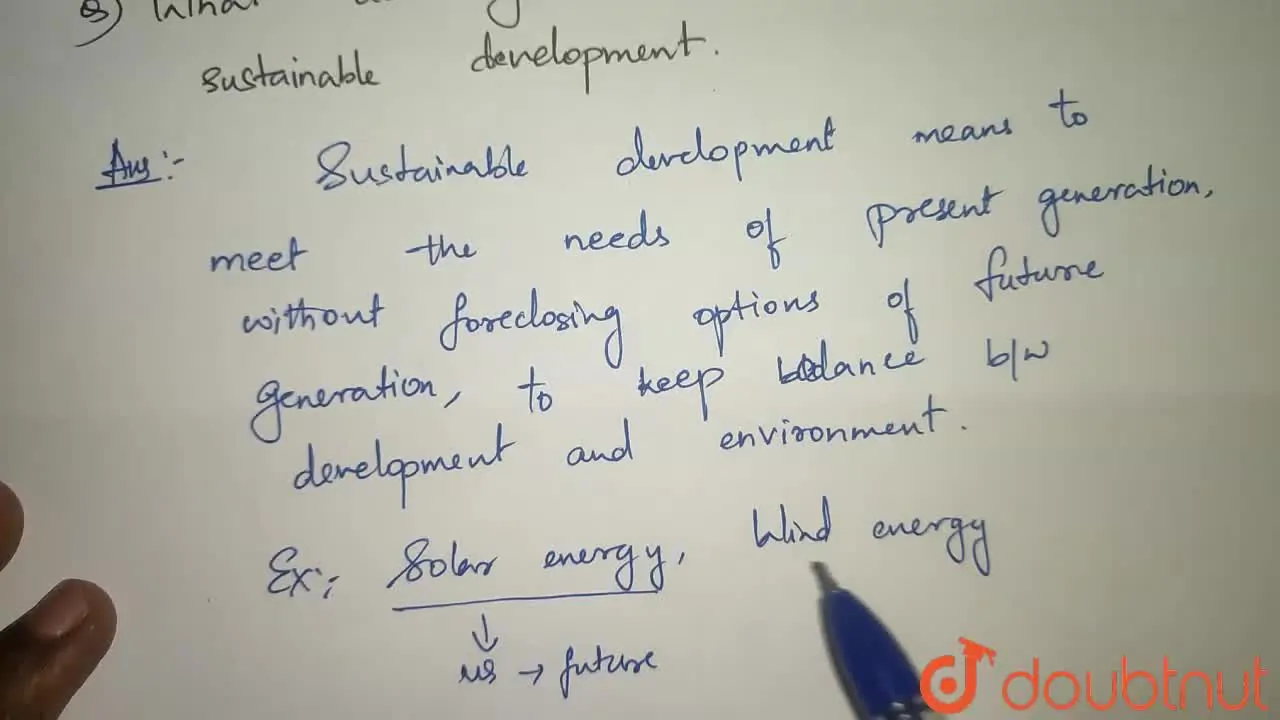 sustainable development.
Ans:- Sustainable development means to
meet the needs of present generation,
without foreclosing options of future
generation, to keep balance b/w
development and environment.
Ex:, Solar energy, Wind energy
↓
us → future
doubtnut